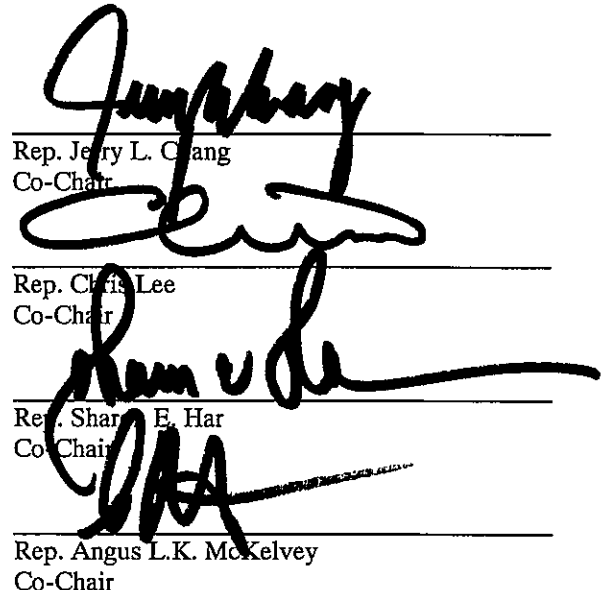 Rep. Jerry L. Chang
Co-Chair
Rep. Chris Lee
Co-Chair
Rep. Sharon E. Har
Co-Chair
Rep. Angus L.K. McKelvey
Co-Chair